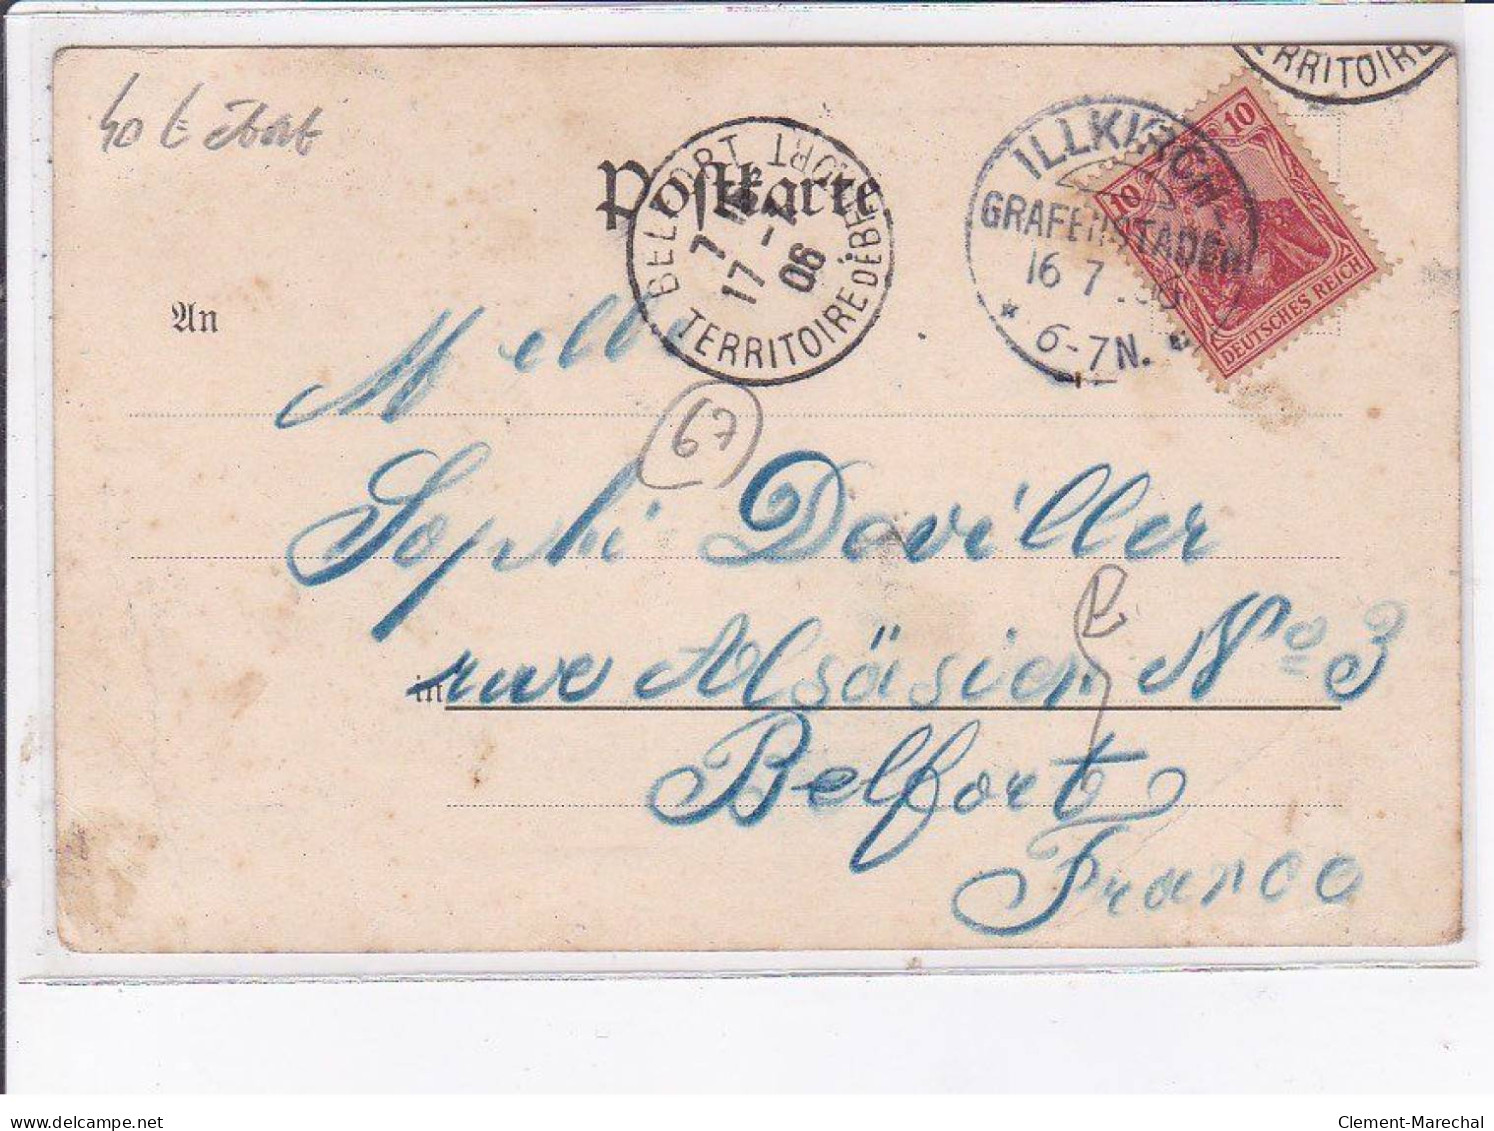 TERRITOIRE
Postkarte
BELFORT TERRITOIRE DE BELFORT
7
17 - 7
06
ILLKIRCH-
GRAFENSTADEN
16 7 06
* 6-7N. *
10 10
DEUTSCHES REICH
An
Melle
67
Sophi Doviller
in rue Alsäsien No 3
Belfort
France
delcampe.net
Clement-Marechal